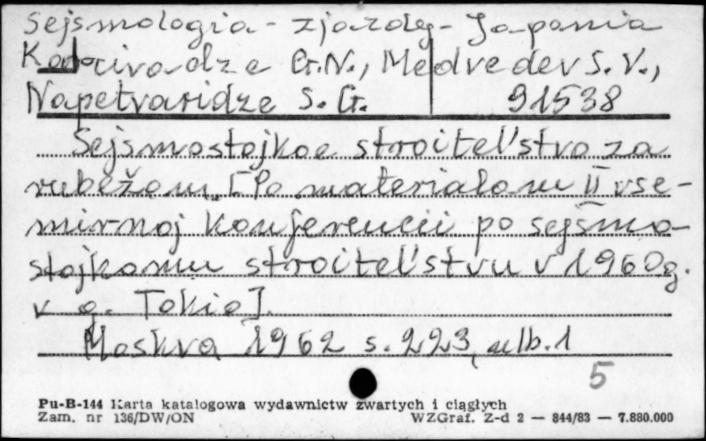 Sejsmologia - zjazdy - Japonia
Karcivadze G.N., Medvedev S. V.,
Napetvaridze S. G. 91538
Sejsmostojkoe stroitel'stvo za
rubežom. [Po materialam II vse-
mirnoj konferencii po sejsmo-
stojkomu stroitel'stvu v 1960g.
v g. Tokio].
Moskva 1962 s. 223, 1
5
Pu-B-144 Karta katalogowa wydawnictw zwartych i ciągłych
Zam. nr 136/DW/ON WZGraf. Z-d 2 — 844/83 — 7.880.000